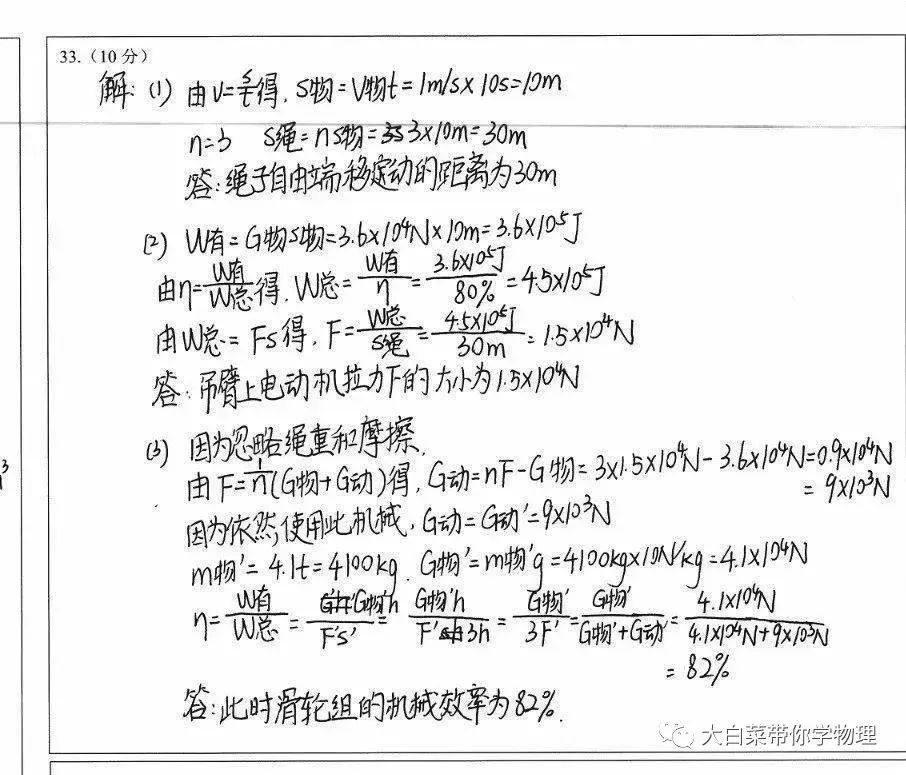 33.（10 分）
解：(1) 由V=s/t得，S物=V物t=1m/s×10s=10m
n=3 S绳=nS物=3×10m=30m
答：绳子自由端移动的距离为30m
(2) W有=G物S物=3.6×10⁴N×10m=3.6×10⁵J
由η=W有/W总得，W总=W有/η=3.6×10⁵J/80%=4.5×10⁵J
由W总=Fs得，F=W总/S绳=4.5×10⁵J/30m=1.5×10⁴N
答：吊臂上电动机拉力F的大小为1.5×10⁴N
(3) 因为忽略绳重和摩擦，
由F=1/n(G物+G动)得，G动=nF-G物=3×1.5×10⁴N-3.6×10⁴N=0.9×10⁴N
=9×10³N
因为依然使用此机械，G动=G动'=9×10³N
m物'=4.1t=4100kg，G物'=m物'g=4100kg×10N/kg=4.1×10⁴N
η=W有/W总=G物'h/F's'=G物'h/F'3h=G物'/3F'=G物'/G物'+G动'=4.1×10⁴N/4.1×10⁴N+9×10³N
=82%
答：此时滑轮组的机械效率为82%.
大白菜带你学物理